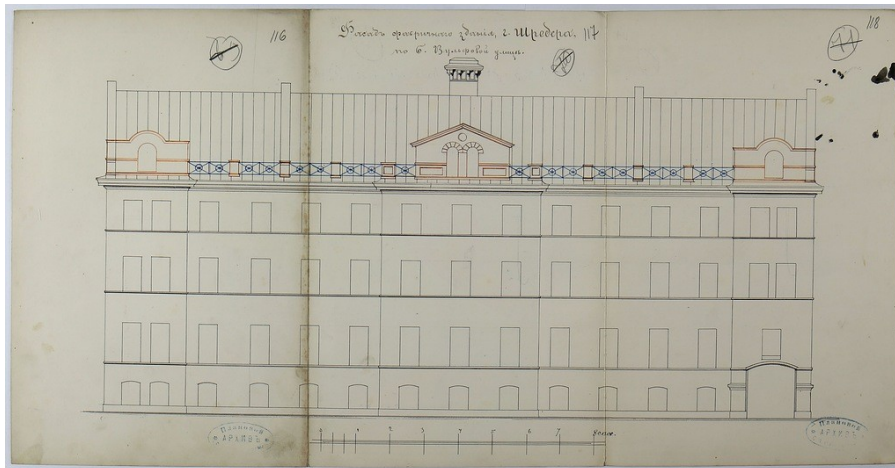 116
Фасадъ фабричнаго зданія, г. Шредера.
117
118
по Б. Вульфовой улицѣ.
1 2 3 4 5 6 7
ПЛАНОВОЙ
АРХИВЪ
ПЛАНОВОЙ
АРХИВЪ